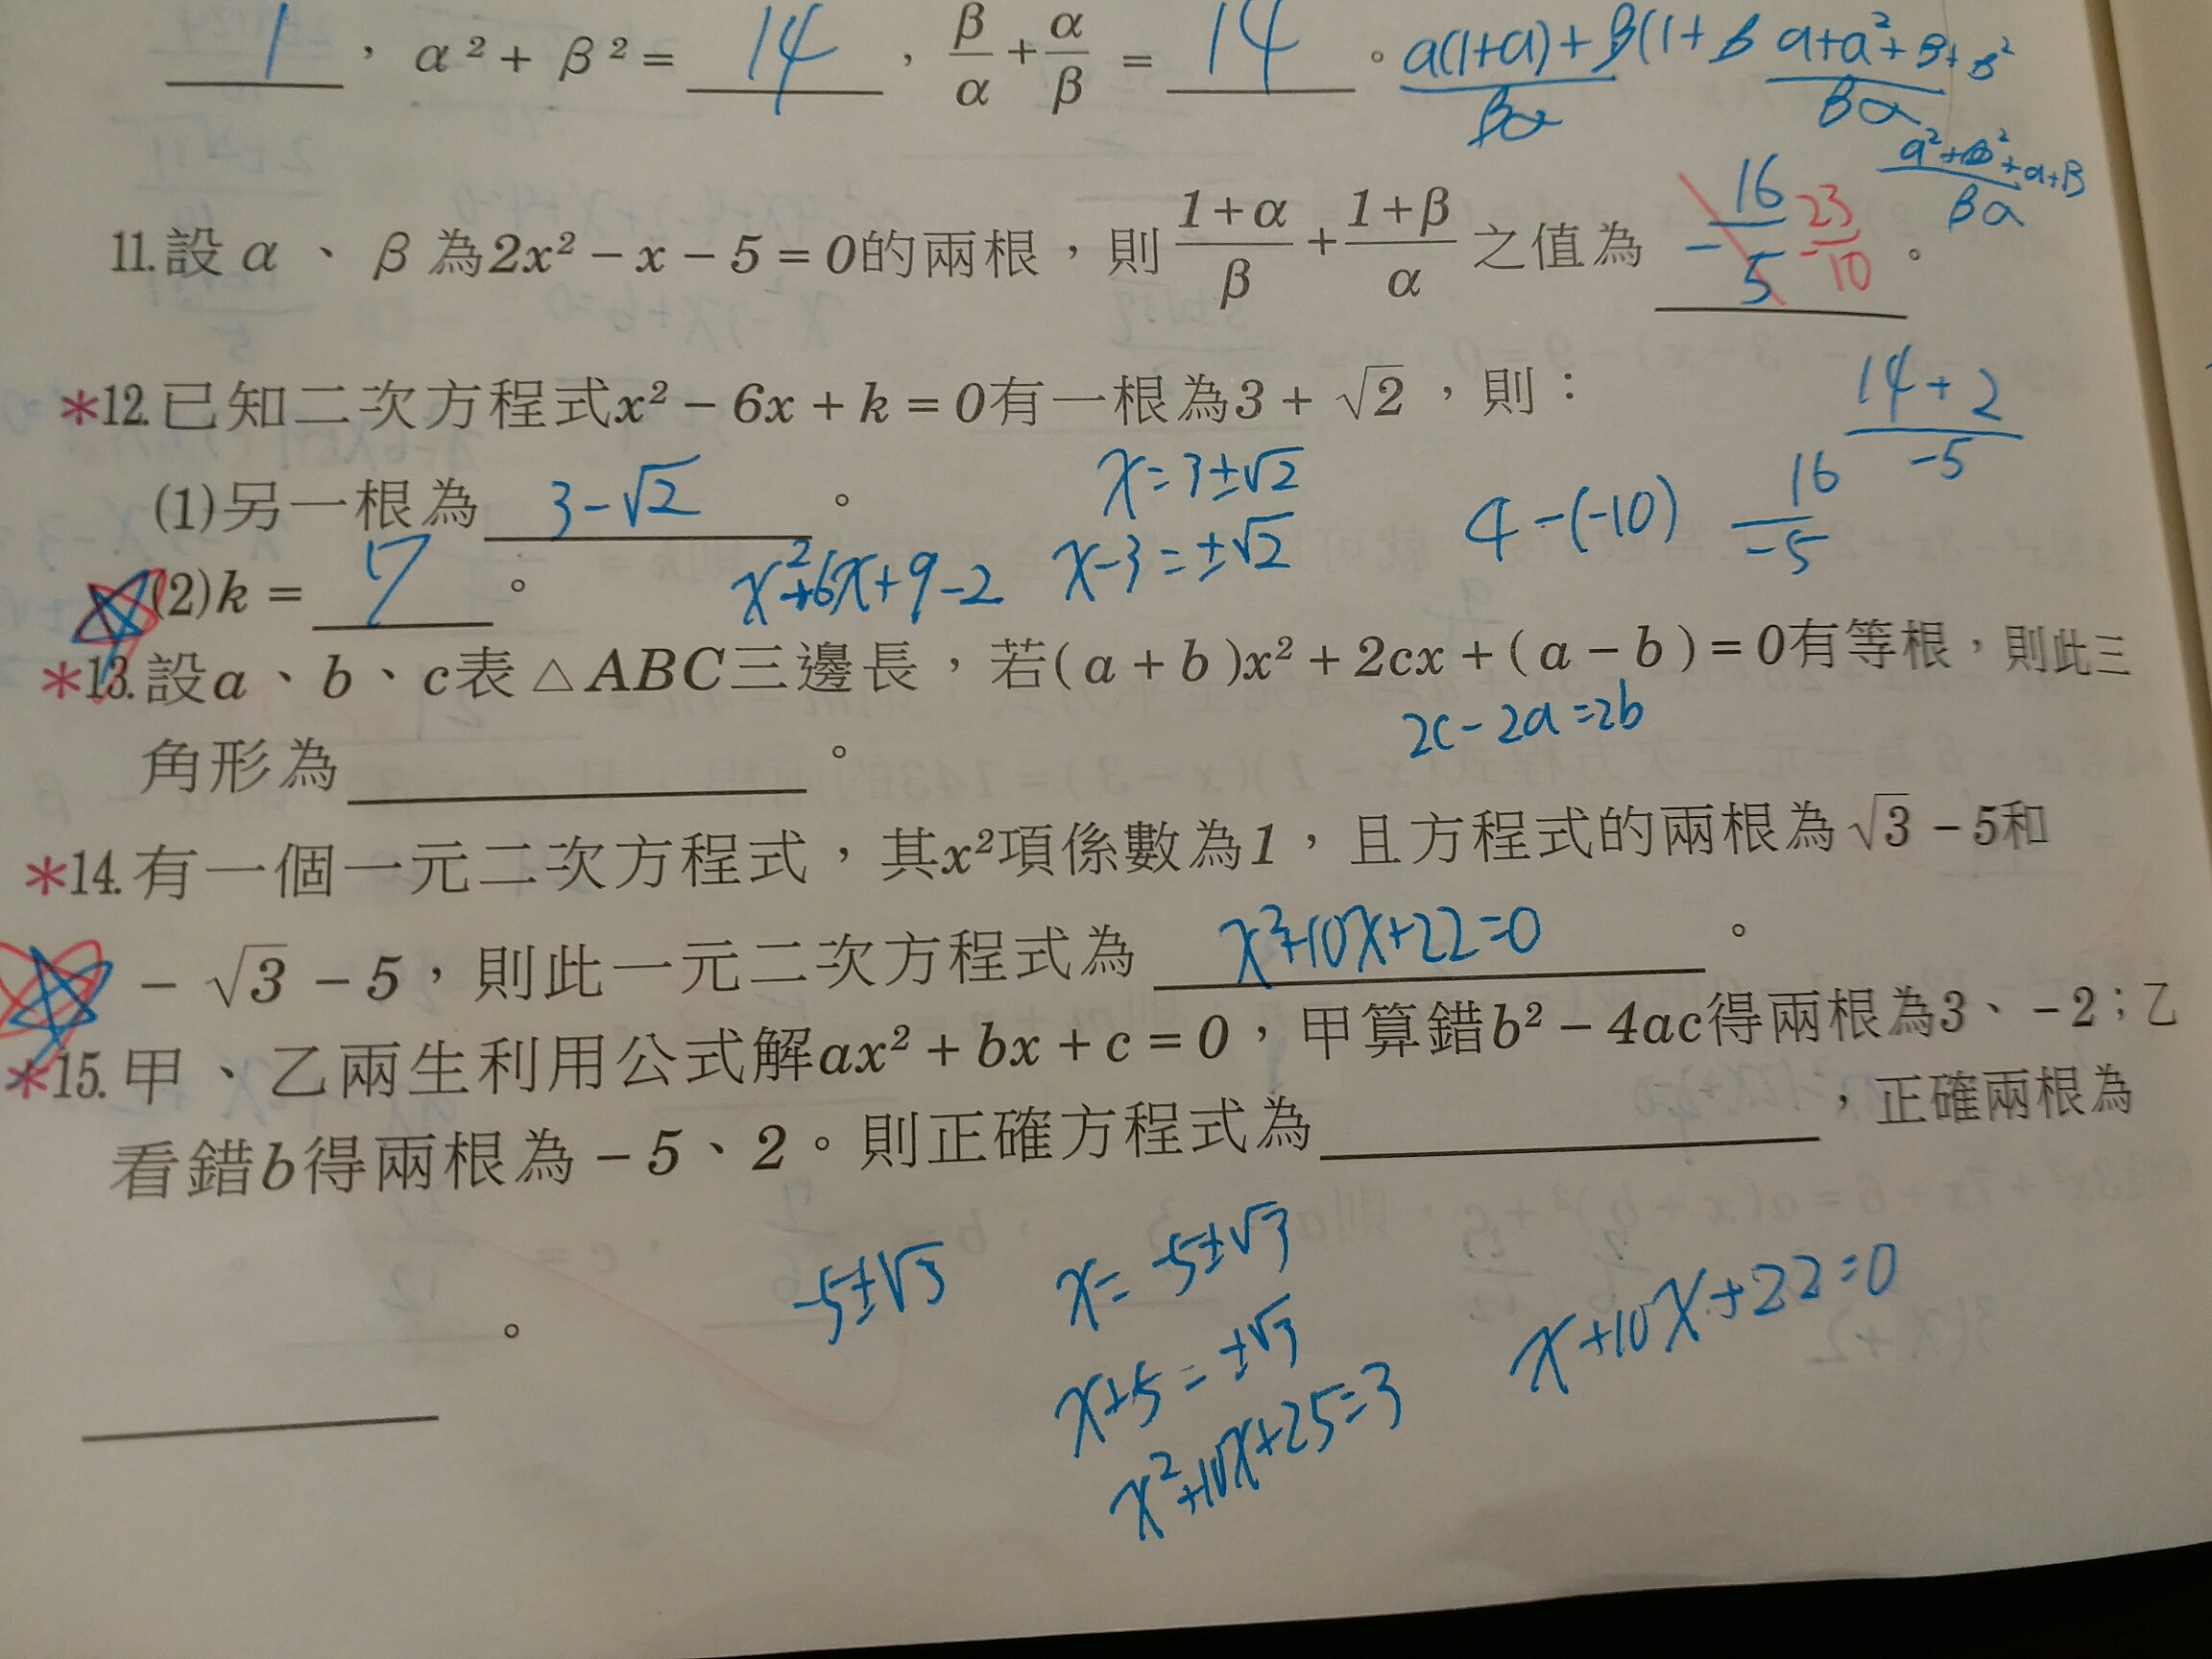 1 , α² + β² = 14 , β/α + α/β = 14 。 a(1+a)+β(1+β / βα a+a²+β+β² / βα
a²+β²+a+β / βα
11.設α、β為2x²-x-5=0的兩根,則 (1+α)/β + (1+β)/α 之值為 -16/5 -23/10 。
14+2 / -5
*12.已知二次方程式x²-6x+k=0有一根為3+√2,則:
(1)另一根為 3-√2 。 x=3±√2 4-(-10) 16/-5
(2)k= 7 。 x²+6x+9-2 x-3=±√2
*13.設a、b、c表△ABC三邊長,若(a+b)x²+2cx+(a-b)=0有等根,則此三
2c-2a=2b
角形為 。
*14.有一個一元二次方程式,其x²項係數為1,且方程式的兩根為√3-5和
-√3-5,則此一元二次方程式為 x²+10x+22=0 。
*15.甲、乙兩生利用公式解ax²+bx+c=0,甲算錯b²-4ac得兩根為3、-2;乙
看錯b得兩根為-5、2。則正確方程式為 ,正確兩根為
。
-5±√3 x=-5±√3
x+5=±√3 x+10x+22=0
x²+10x+25=3